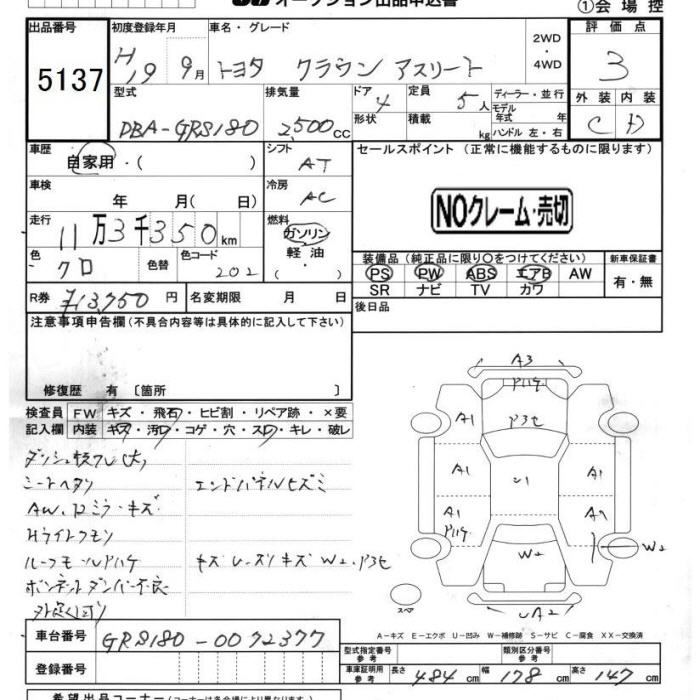 オークション出品申込書
①会場控
出品番号
5137
初度登録年月
H19 9月
車名・グレード
トヨタ クラウン アスリート
2WD
・
4WD
評価点
3
型式
DBA-GRS180
排気量
2,500cc
ドア 4
形状
定員 5人
積載 kg
ディーラー・並行
モデル年式 年
ハンドル 左・右
外装 内装
C D
車歴
自家用・( )
シフト
AT
セールスポイント (正常に機能するものに限ります)
車検
年 月( 日)
冷房
AC
NOクレーム・売切
走行
11万3千350km
燃料
ガソリン
軽油
・( )
色
クロ
色替
色コード
202
装備品 (純正品に限り〇をつけてください)
PS PW ABS エアB AW
SR ナビ TV カワ
新車保証書
有・無
R券 ¥13,750円
名変期限 月 日
後日品
注意事項申告欄(不具合内容等は具体的に記入して下さい)
修復歴 有〔箇所 〕
検査員
記入欄
FW キズ・飛石・ヒビ割・リペア跡・×要
内装 キズ・汚レ・コゲ・穴・スレ・キレ・破レ
シートヘタリ
エンドパネルヒズミ
AW、Dミラーキズ
Hライトクモリ
ルーフモールPハゲ
ボンネットダンパー不良
A3
Pハゲ
A1
A1
A1
A1
Pハゲ
A1
W2
W2
A2
スペア
A-キズ E-エクボ U-凹み W-補修跡 S-サビ C-腐食 XX-交換済
車台番号
GRS180-0072377
登録番号
型式指定番号
参考
類別区分番号
参考
車庫証明用
参考
長さ 484cm
幅 178cm
高さ 147cm
希望出品コーナー(コーナーは各会場により異なります)